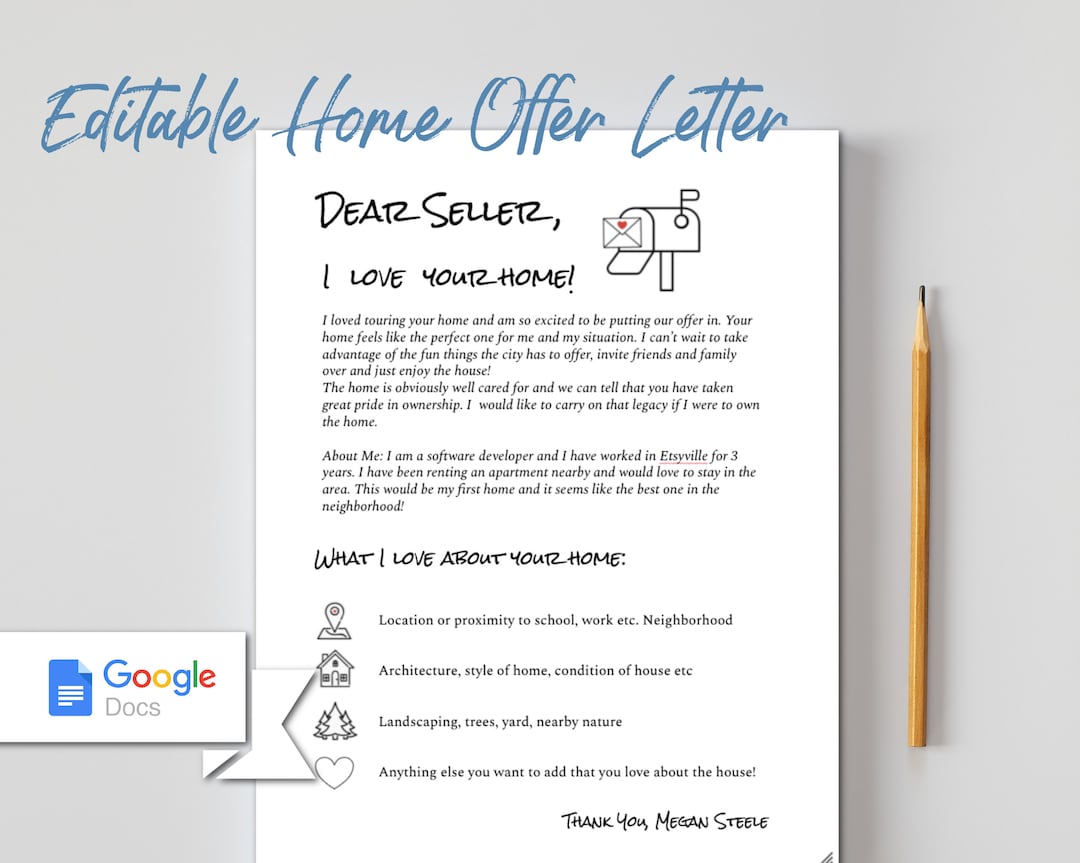 Editable Home Offer Letter
Dear Seller,
I love your home!
I loved touring your home and am so excited to be putting our offer in. Your
home feels like the perfect one for me and my situation. I can't wait to take
advantage of the fun things the city has to offer, invite friends and family
over and just enjoy the house!
The home is obviously well cared for and we can tell that you have taken
great pride in ownership. I would like to carry on that legacy if I were to own
the home.
About Me: I am a software developer and I have worked in Etsyville for 3
years. I have been renting an apartment nearby and would love to stay in the
area. This would be my first home and it seems like the best one in the
neighborhood!
What I love about your home:
Location or proximity to school, work etc. Neighborhood
Architecture, style of home, condition of house etc
Landscaping, trees, yard, nearby nature
Anything else you want to add that you love about the house!
Thank You, Megan Steele
Google
Docs